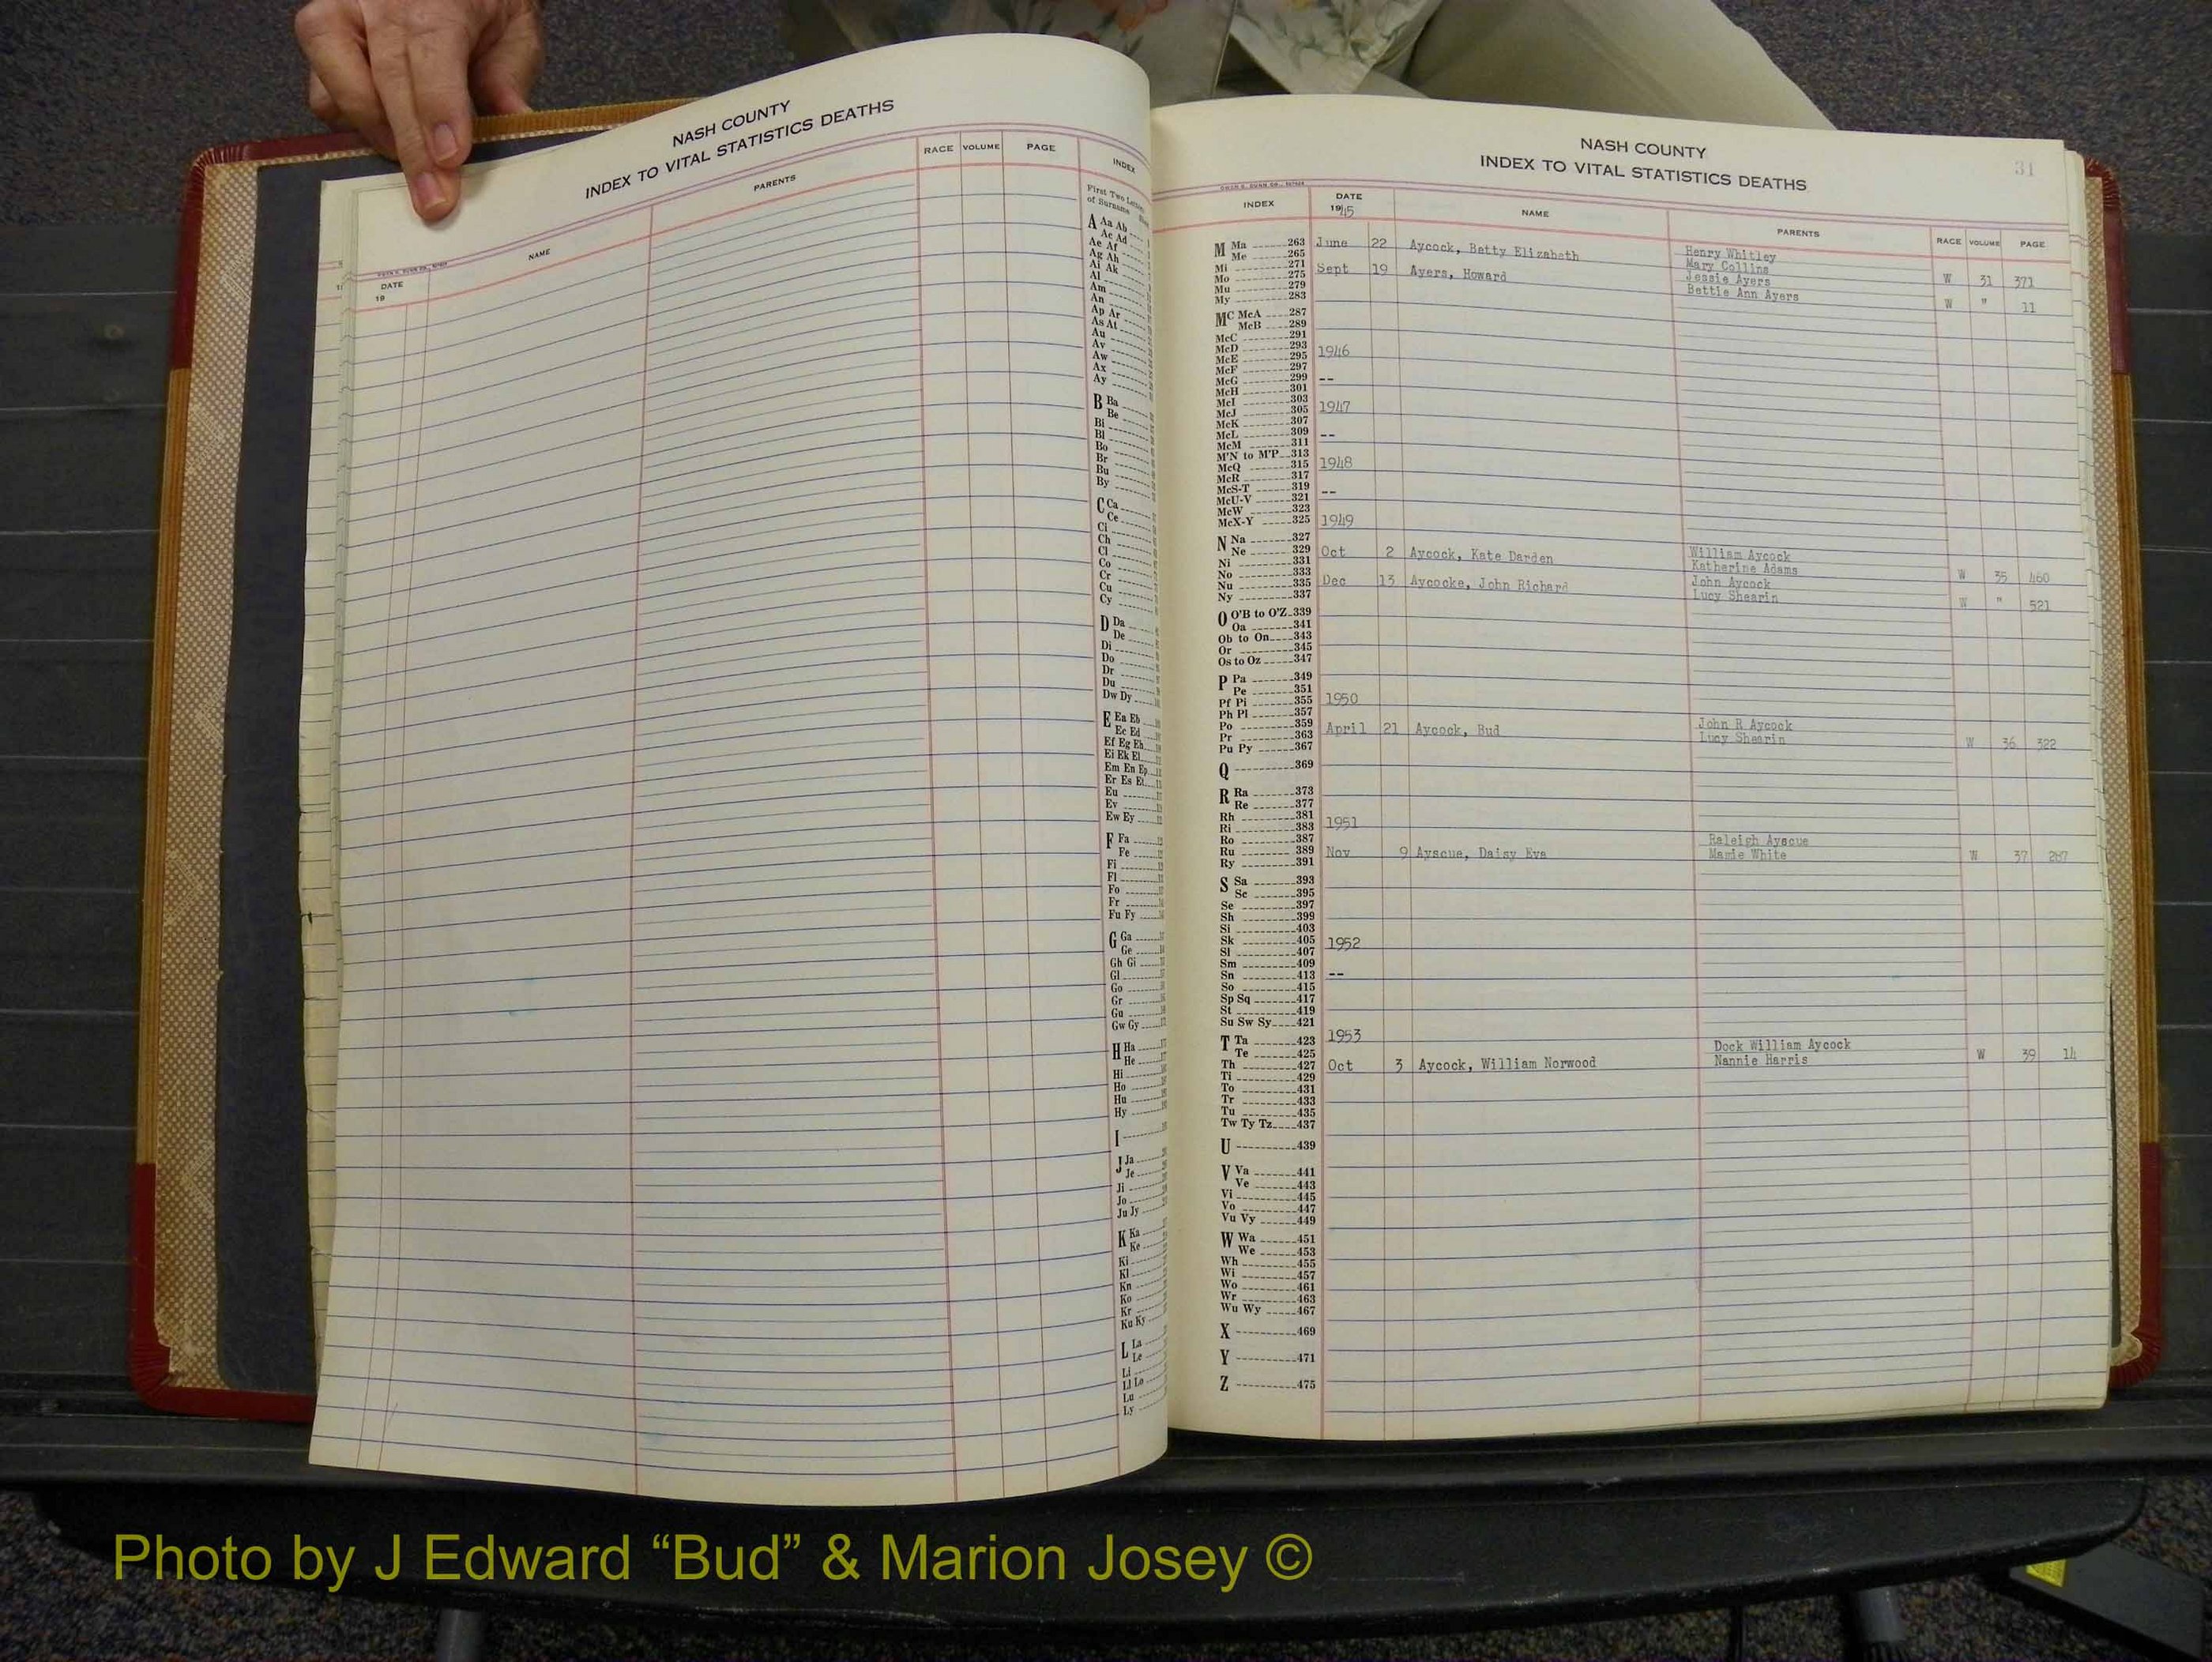 NASH COUNTY
INDEX TO VITAL STATISTICS DEATHS
DATE
19
NAME
PARENTS
RACE VOLUME PAGE
INDEX
First Two Letters
of Surname
A Aa Ab
Ac Ad
Ae Af
Ag Ah
Ai Ak
Al
Am
An
Ap Ar
As At
Au
Av
Aw
Ax
Ay
B Ba
Be
Bi
Bl
Bo
Br
Bu
By
C Ca
Ce
Ci
Ch
Cl
Co
Cr
Cu
Cy
D Da
De
Di
Do
Dr
Du
Dw Dy
E Ea Eb
Ec Ed
Ef Eg Eh
Ei Ek El
Em En Ep
Er Es Et
Eu
Ev
Ew Ey
F Fa
Fe
Fi
Fl
Fo
Fr
Fu Fy
G Ga
Ge
Gh Gi
Gl
Go
Gr
Gu
Gw Gy
H Ha
He
Hi
Ho
Hu
Hy
I
J Ja
Je
Ji
Jo
Ju Jy
K Ka
Ke
Ki
Kl
Kn
Ko
Kr
Ku Ky
L La
Le
Li
Ll Lo
Lu
Ly
NASH COUNTY
INDEX TO VITAL STATISTICS DEATHS
31
INDEX
DATE
1945
NAME
PARENTS
RACE VOLUME PAGE
M Ma 263
Me 265
Mi 271
Mo 275
Mu 279
My 283
Mc McA 287
McB 289
McC 291
McD 293
McE 295
McF 297
McG 299
McH 301
McI 303
McJ 305
McK 307
McL 309
McM 311
M'N to M'P 313
McQ 315
McR 317
McS-T 319
McU-V 321
McW 323
McX-Y 325
N Na 327
Ne 329
Ni 331
No 333
Nu 335
Ny 337
O O'B to O'Z 339
Oa 341
Ob to On 343
Or 345
Os to Oz 347
P Pa 349
Pe 351
Pf Pi 355
Ph Pl 357
Po 359
Pr 363
Pu Py 367
Q 369
R Ra 373
Re 377
Rh 381
Ri 383
Ro 387
Ru 389
Ry 391
S Sa 393
Sc 395
Se 397
Sh 399
Si 403
Sk 405
Sl 407
Sm 409
Sn 413
So 415
Sp Sq 417
St 419
Su Sw Sy 421
T Ta 423
Te 425
Th 427
Ti 429
To 431
Tr 433
Tu 435
Tw Ty Tz 437
U 439
V Va 441
Ve 443
Vi 445
Vo 447
Vu Vy 449
W Wa 451
We 453
Wh 455
Wi 457
Wo 461
Wr 463
Wu Wy 467
X 469
Y 471
Z 475
June 22 Aycock, Betty Elizabeth Henry Whitley
Mary Collins W 31 371
Sept 19 Ayers, Howard Jessie Ayers
Bettie Ann Ayers W " 11
1946
--
1947
--
1948
--
1949
Oct 2 Aycock, Kate Darden William Aycock
Katherine Adams W 35 460
Dec 13 Aycocke, John Richard John Aycock
Lucy Shearin W " 521
1950
April 21 Aycock, Bud John R Aycock
Lucy Shearin W 36 322
1951
Raleigh Ayscue
Nov 9 Ayscue, Daisy Eva Mamie White W 37 287
1952
--
1953
Dock William Aycock
Oct 3 Aycock, William Norwood Nannie Harris W 39 14
Photo by J Edward “Bud” & Marion Josey ©